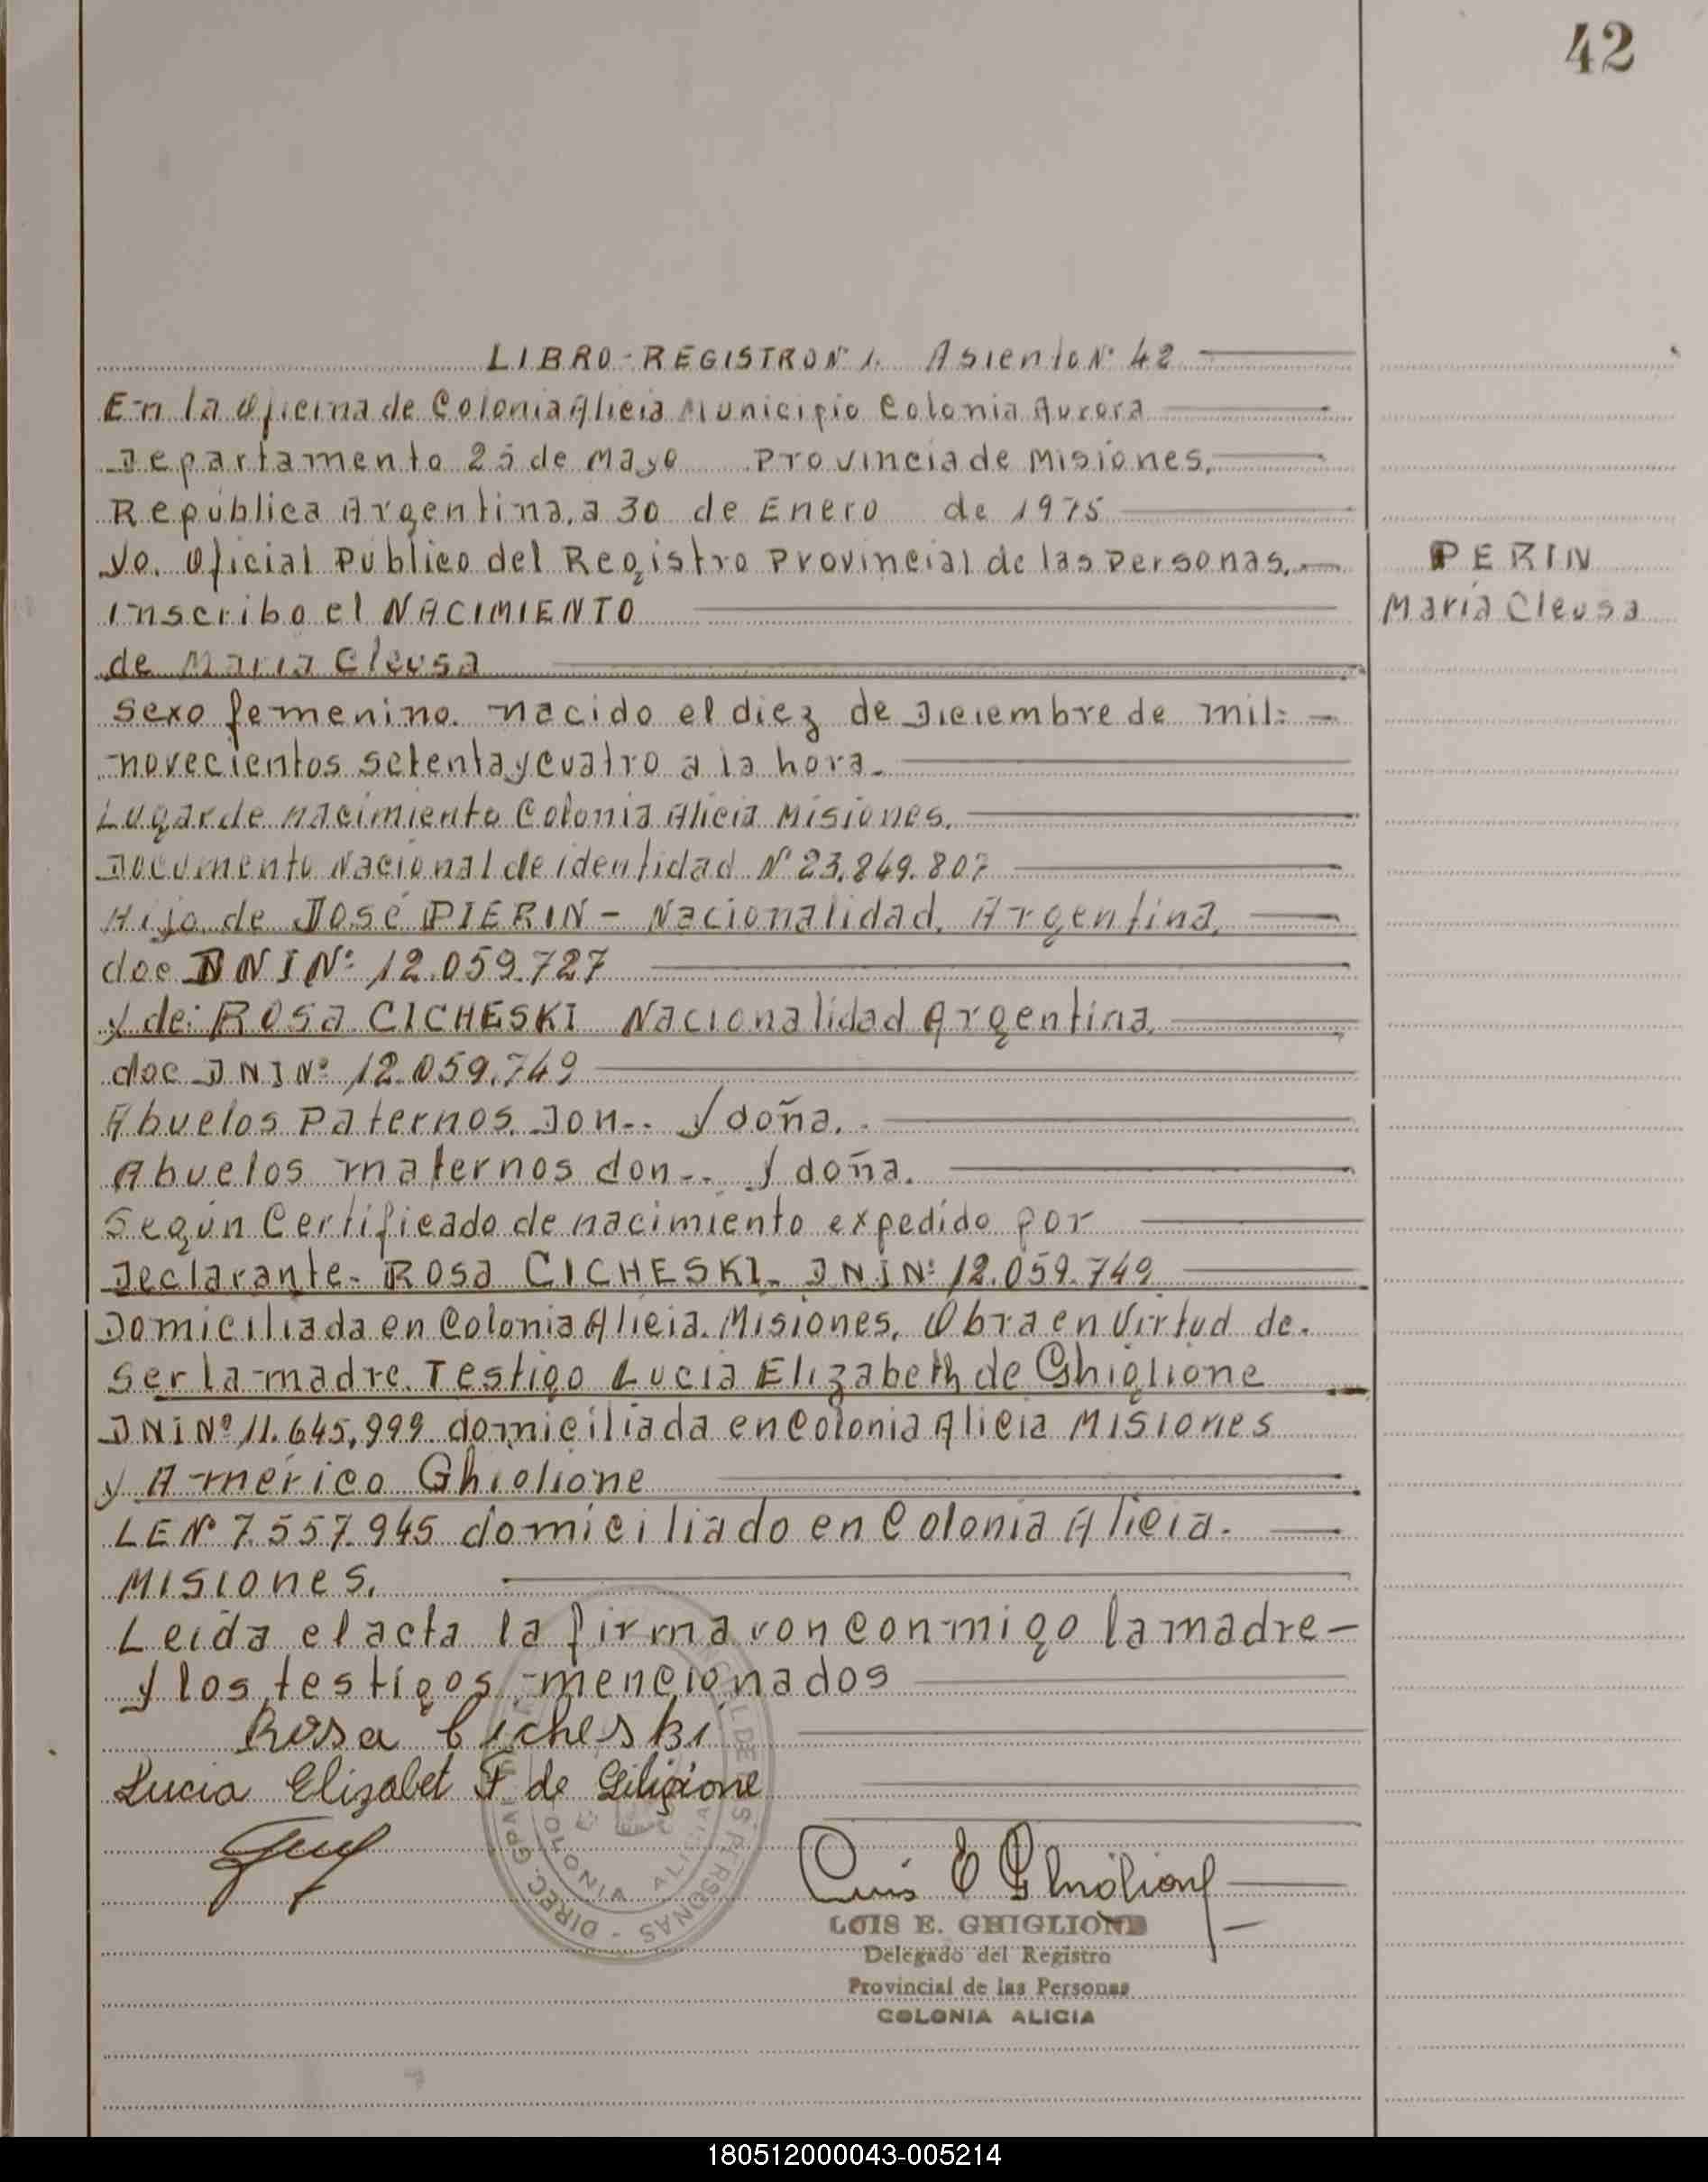 42
LIBRO-REGISTRO Nº 1. Asiento Nº 42
En la oficina de Colonia Alicia Municipio Colonia Aurora
Departamento 25 de Mayo Provincia de Misiones.
República Argentina, a 30 de Enero de 1975
yo. Oficial Público del Registro Provincial de las Personas.
PERIN
inscribo el NACIMIENTO
María Cleusa
de Maria Cleusa
sexo femenino. nacido el diez de Diciembre de mil
novecientos setenta y cuatro a la hora.
Lugar de nacimiento Colonia Alicia Misiones.
Documento Nacional de identidad Nº 23.849.807
Hijo de José PIERIN - Nacionalidad, Argentina,
doc DNI Nº 12.059.727
y de: ROSA CICHESKI Nacionalidad Argentina.
doc DNI Nº 12.059.749
Abuelos Paternos. Don.. y doña.
Abuelos maternos don.. y doña.
Según Certificado de nacimiento expedido por
Declarante. ROSA CICHESKI. DNI Nº 12.059.749
Domiciliada en Colonia Alicia. Misiones. Obra en Virtud de.
Ser la madre. Testigo Lucia Elizabeth de Ghiglione
DNI Nº 11.645.999 domiciliada en Colonia Alicia Misiones
y Américo Ghiolione
LE Nº 7.557.945 domiciliado en Colonia Alicia.
Misiones.
Leida el acta la firmaron conmigo la madre-
y los testigos mencionados
Rosa Cicheski
Lucia Elizabet F de Giligione
DIREC. GRAL DE PERSONAS
COLONIA ALICIA
Luis E Ghiglione
LUIS E. GHIGLIONE
Delegado del Registro
Provincial de las Personas
COLONIA ALICIA
180512000043-005214